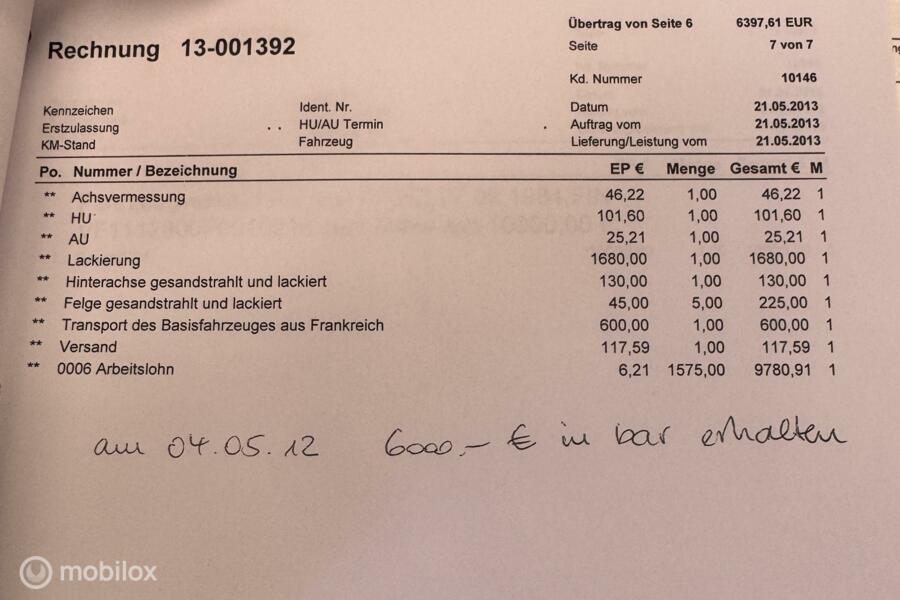 Übertrag von Seite 6 6397,61 EUR
Rechnung 13-001392
Seite 7 von 7
Kd. Nummer 10146
Kennzeichen Ident. Nr. Datum 21.05.2013
Erstzulassung . . HU/AU Termin . Auftrag vom 21.05.2013
KM-Stand Fahrzeug Lieferung/Leistung vom 21.05.2013
Po. Nummer / Bezeichnung EP € Menge Gesamt € M
** Achsvermessung 46,22 1,00 46,22 1
** HU 101,60 1,00 101,60 1
** AU 25,21 1,00 25,21 1
** Lackierung 1680,00 1,00 1680,00 1
** Hinterachse gesandstrahlt und lackiert 130,00 1,00 130,00 1
** Felge gesandstrahlt und lackiert 45,00 5,00 225,00 1
** Transport des Basisfahrzeuges aus Frankreich 600,00 1,00 600,00 1
** Versand 117,59 1,00 117,59 1
** 0006 Arbeitslohn 6,21 1575,00 9780,91 1
am 04.05.12 6000,- € in bar erhalten
mobilox